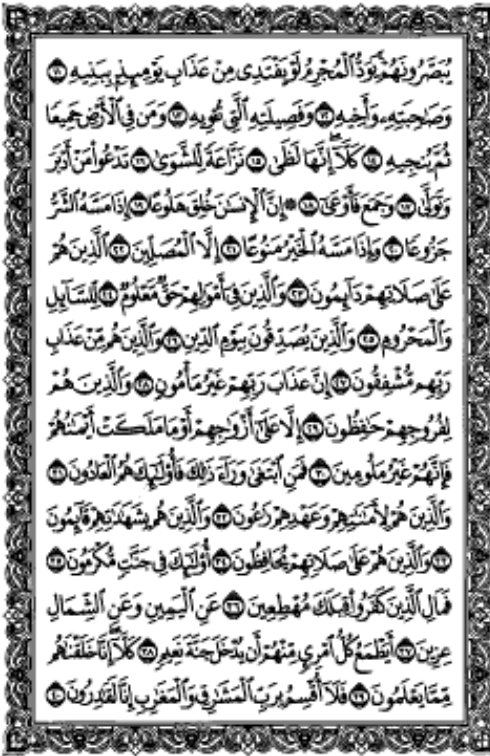 يُبَصَّرُونَهُمْ يَوَدُّ ٱلْمُجْرِمُ لَوْ يَفْتَدِى مِنْ عَذَابِ يَوْمِئِذٍۭ بِبَنِيهِ ١١
وَصَٰحِبَتِهِۦ وَأَخِيهِ ١٢ وَفَصِيلَتِهِ ٱلَّتِى تُـْٔوِيهِ ١٣ وَمَن فِى ٱلْأَرْضِ جَمِيعًا
ثُمَّ يُنجِيهِ ١٤ كَلَّآ إِنَّهَا لَظَىٰ ١٥ نَزَّاعَةً لِّلشَّوَىٰ ١٦ تَدْعُوا۟ مَنْ أَدْبَرَ
وَتَوَلَّىٰ ١٧ وَجَمَعَ فَأَوْعَىٰٓ ١٨ ۞ إِنَّ ٱلْإِنسَٰنَ خُلِقَ هَلُوعًا ١٩ إِذَا مَسَّهُ ٱلشَّرُّ
جَزُوعًا ٢٠ وَإِذَا مَسَّهُ ٱلْخَيْرُ مَنُوعًا ٢١ إِلَّا ٱلْمُصَلِّينَ ٢٢ ٱلَّذِينَ هُمْ
عَلَىٰ صَلَاتِهِمْ دَآئِمُونَ ٢٣ وَٱلَّذِينَ فِىٓ أَمْوَٰلِهِمْ حَقٌّ مَّعْلُومٌ ٢٤ لِّلسَّآئِلِ
وَٱلْمَحْرُومِ ٢٥ وَٱلَّذِينَ يُصَدِّقُونَ بِيَوْمِ ٱلدِّينِ ٢٦ وَٱلَّذِينَ هُم مِّنْ عَذَابِ
رَبِّهِم مُّشْفِقُونَ ٢٧ إِنَّ عَذَابَ رَبِّهِمْ غَيْرُ مَأْمُونٍ ٢٨ وَٱلَّذِينَ هُمْ
لِفُرُوجِهِمْ حَٰفِظُونَ ٢٩ إِلَّا عَلَىٰٓ أَزْوَٰجِهِمْ أَوْ مَا مَلَكَتْ أَيْمَٰنُهُمْ
فَإِنَّهُمْ غَيْرُ مَلُومِينَ ٣٠ فَمَنِ ٱبْتَغَىٰ وَرَآءَ ذَٰلِكَ فَأُو۟لَٰٓئِكَ هُمُ ٱلْعَادُونَ ٣١
وَٱلَّذِينَ هُمْ لِأَمَٰنَٰتِهِمْ وَعَهْدِهِمْ رَٰعُونَ ٣٢ وَٱلَّذِينَ هُم بِشَهَٰدَٰتِهِمْ قَآئِمُونَ
٣٣ وَٱلَّذِينَ هُمْ عَلَىٰ صَلَاتِهِمْ يُحَافِظُونَ ٣٤ أُو۟لَٰٓئِكَ فِى جَنَّٰتٍ مُّكْرَمُونَ ٣٥
فَمَالِ ٱلَّذِينَ كَفَرُوا۟ قِبَلَكَ مُهْطِعِينَ ٣٦ عَنِ ٱلْيَمِينِ وَعَنِ ٱلشِّمَالِ
عِزِينَ ٣٧ أَيَطْمَعُ كُلُّ ٱمْرِئٍ مِّنْهُمْ أَن يُدْخَلَ جَنَّةَ نَعِيمٍ ٣٨ كَلَّآ إِنَّا خَلَقْنَٰهُم
مِّمَّا يَعْلَمُونَ ٣٩ فَلَآ أُقْسِمُ بِرَبِّ ٱلْمَشَٰرِقِ وَٱلْمَغَٰرِبِ إِنَّا لَقَٰدِرُونَ ٤٠